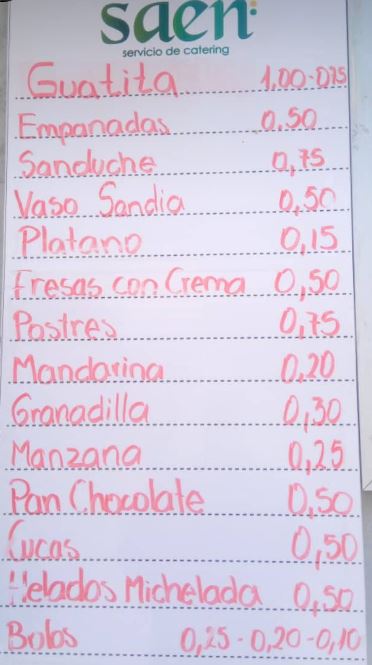 saen
servicio de catering
Guatita 1,00-0,75
Empanadas 0,50
Sanduche 0,75
Vaso Sandia 0,50
Platano 0,15
Fresas con Crema 0,50
Postres 0,75
Mandarina 0,20
Granadilla 0,30
Manzana 0,25
Pan Chocolate 0,50
Cucas 0,50
Helados Michelada 0,50
Bolos 0,25-0,20-0,10